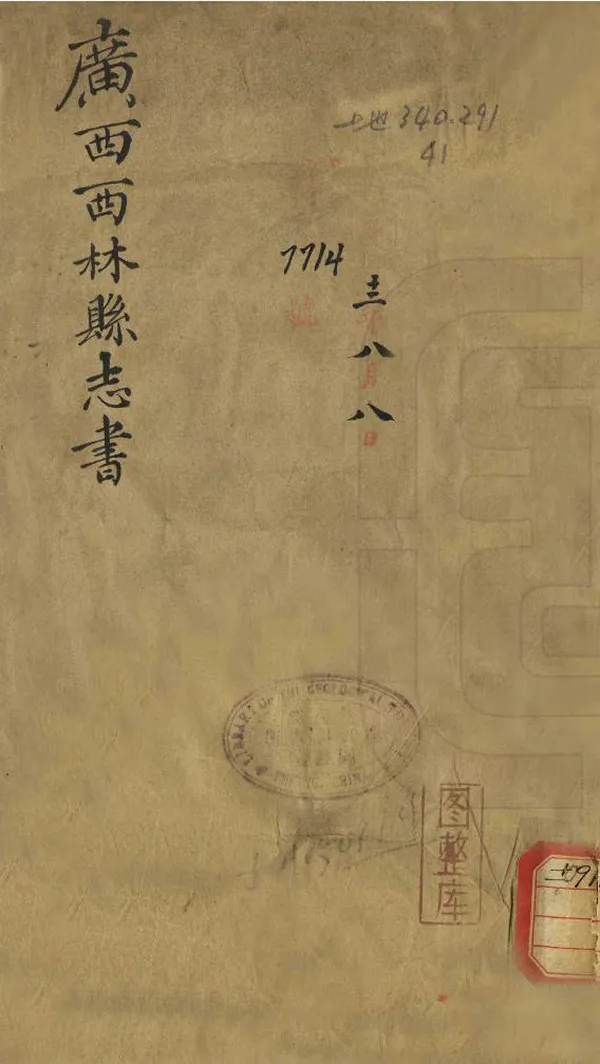 廣西西林縣志書
土地 340.291
41
7714
號
十三年
八月
八日
LIBRARY OF THE GEOLOGICAL
图整库